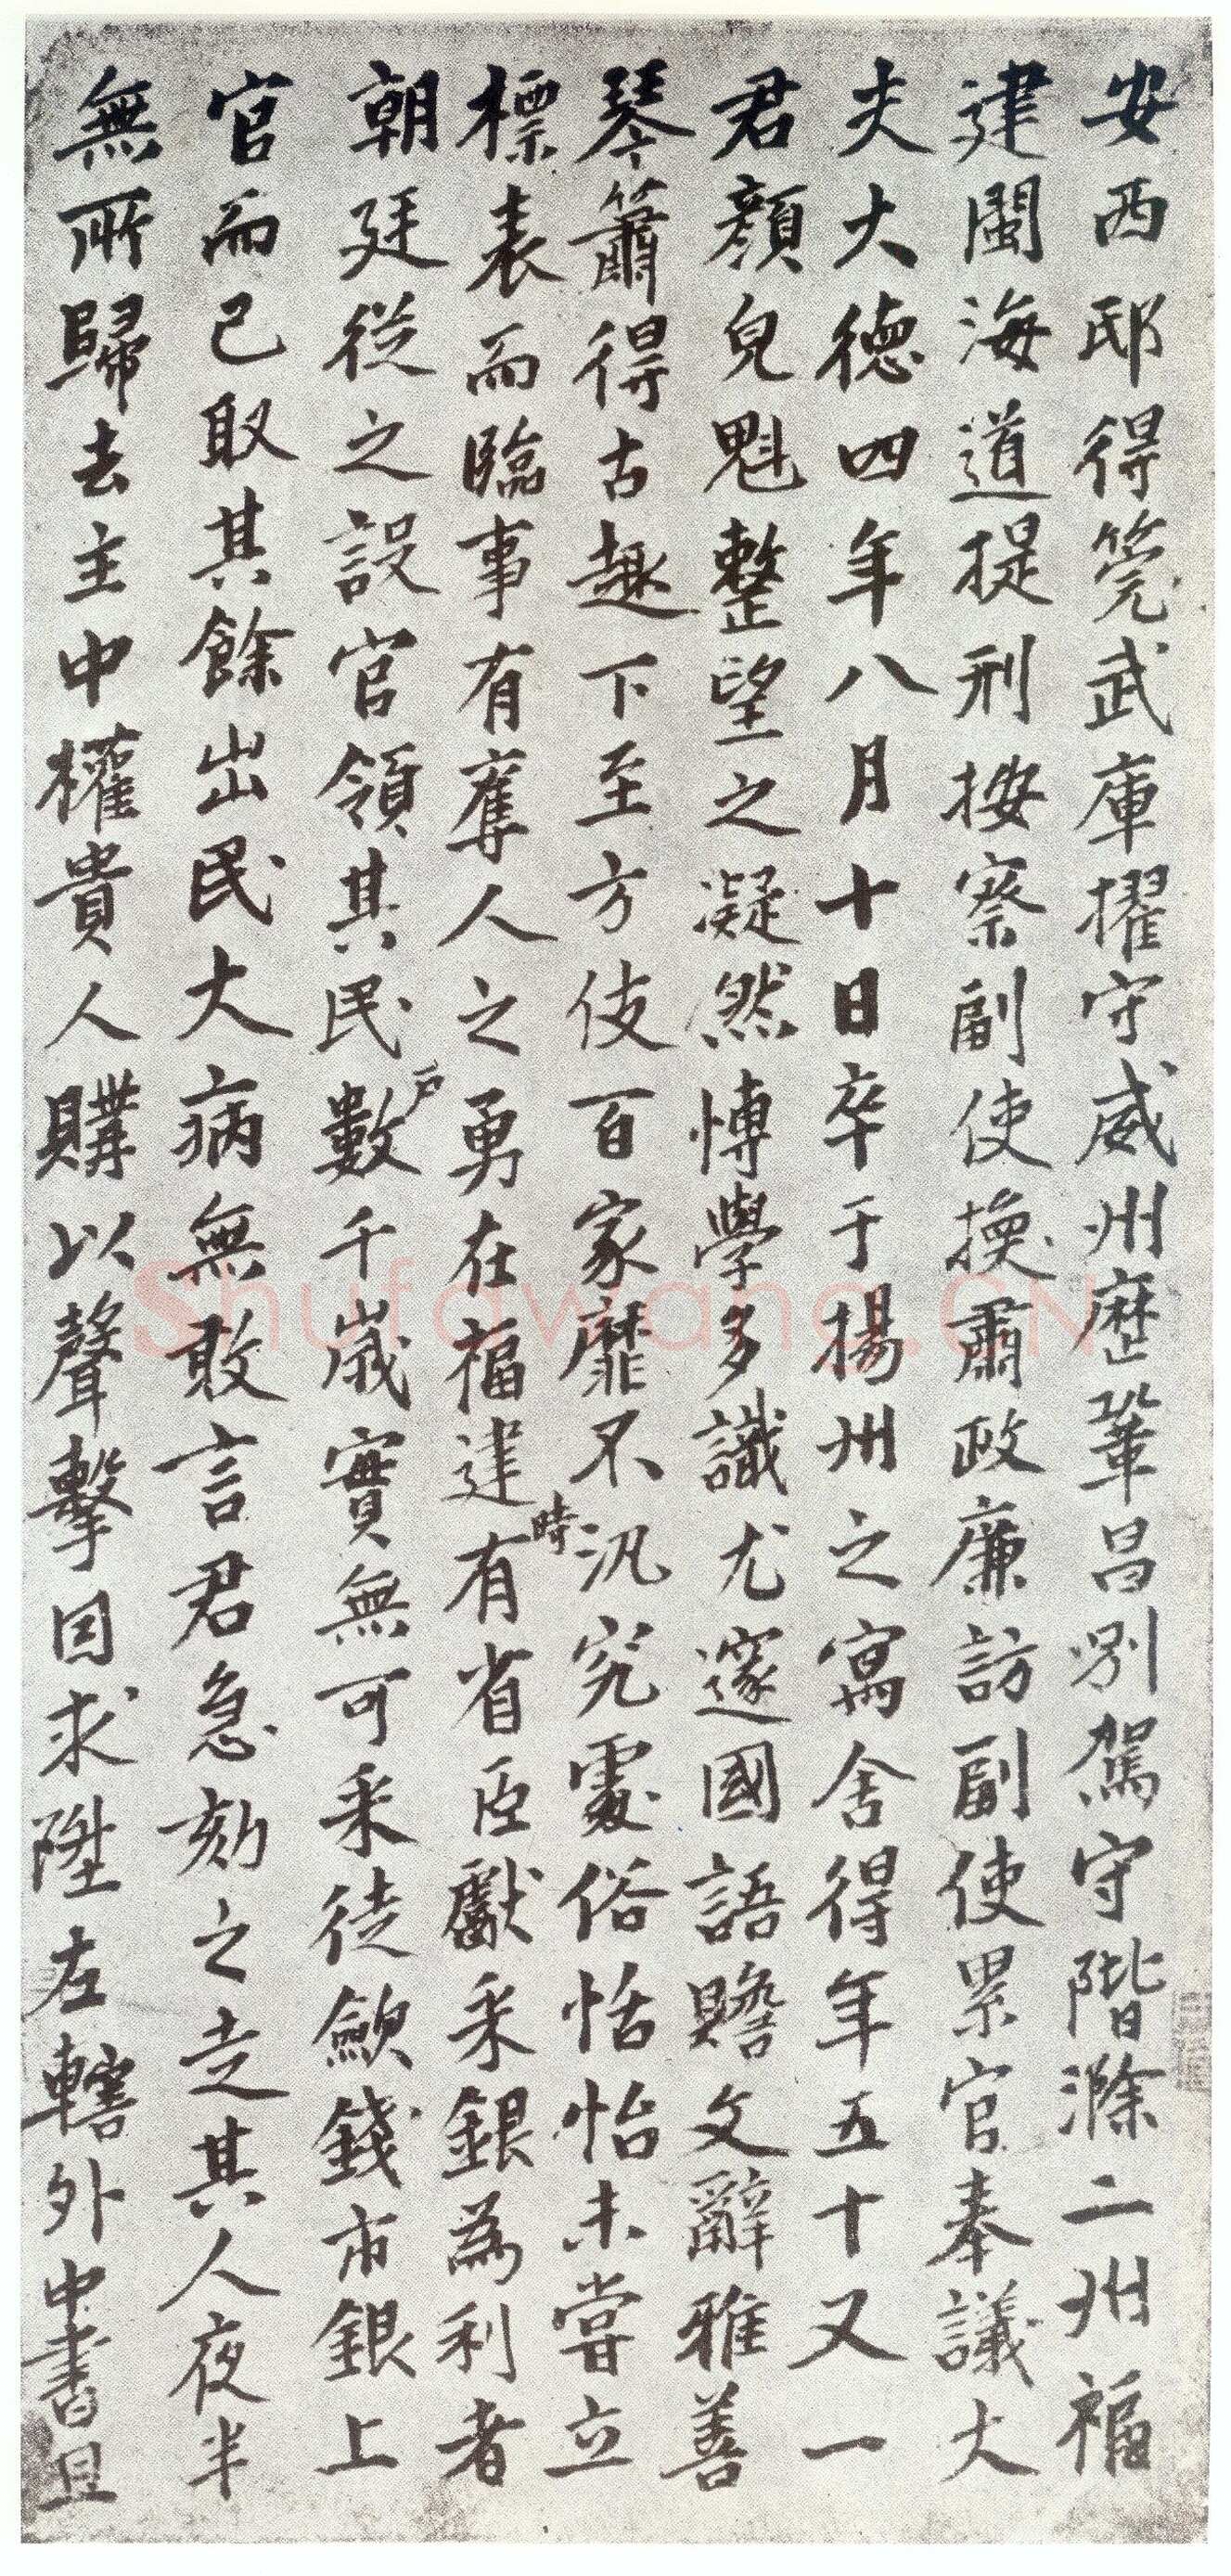 安西邸得筦武庫擢守威州歷鞏昌別駕守階滁二州福
建閩海道提刑按察副使換肅政廉訪副使累官奉議大
夫大德四年八月十日卒于揚州之寓舍得年五十又一
君顏皃魁整望之凝然愽學多識尤邃國語贍文辭雅善
琴簫得古趣下至方伎百家靡不汎究處俗恬怡未嘗立
標表而臨事有奪人之勇在福建時有省臣獻采銀為利者
朝廷從之設官領其民戶數千歲實無可采徒斂錢市銀上
官而已取其餘出民大病無敢言君急劾之走其人夜半
無所歸去主中權貴人購以聲擊因求陞左轄外中書且
Shufawang.CN